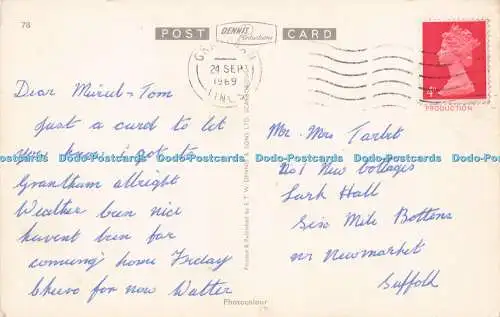 78
POST CARD
DENNIS
Productions
GRANTHAM
24 SEP
1969
LINCS
4D
PRODUCTION
Dear Muriel - Tom
Just a card to let
you know i got to
Grantham allright
Weather been nice
havent been far
comeing home Friday
Cheero for now Walter
Printed & Published by E.T.W. DENNIS & SONS LTD. SCARBOROUGH
Mr. Mrs Tarbet
No 1 New Cottages
Lark Hall
Six Mile Bottons
nr Newmarket
Suffolk
Photocolour
Dodo-Postcards Dodo-Postcards Dodo-Postcards Dodo-Postcards Dodo-Postcards